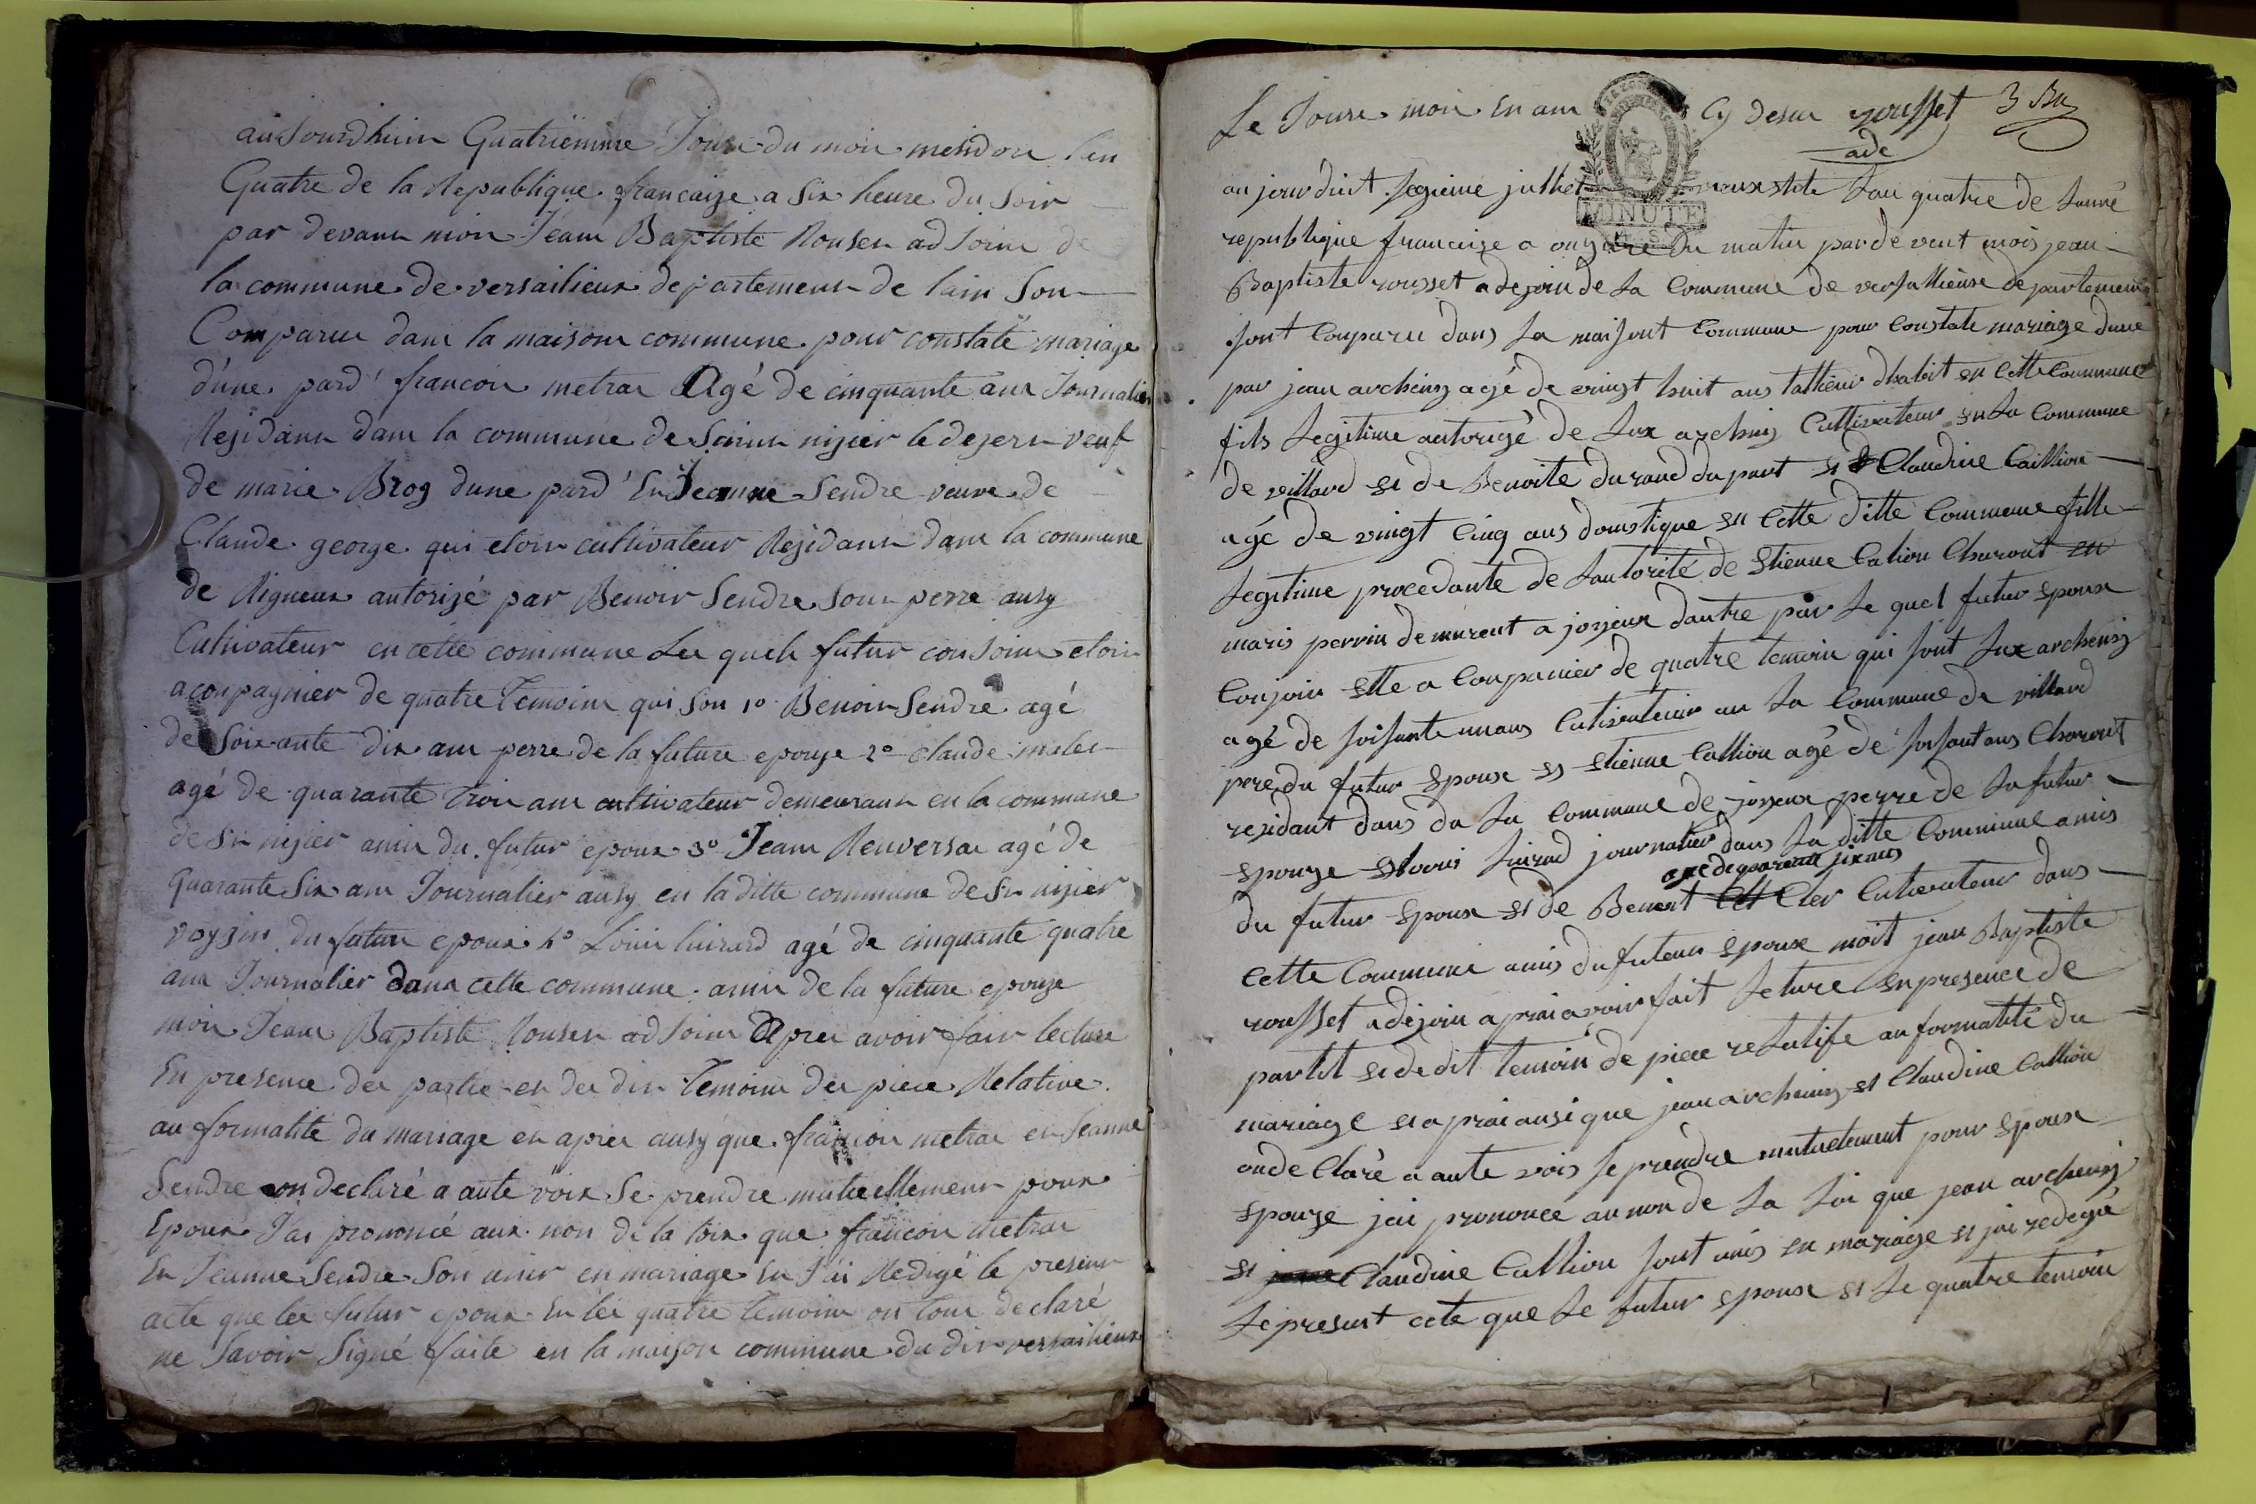 aujourdhuin Quatriemme Jour du moi mesidor l'en
Quatre de la Republique francaize a Six heure du Soir
par devant moi Jean Baptiste Rouset adjoint de
la commune de versailieux departement de lain Son
Comparu dans la maison commune pour constaté mariage
d'une pard francois metras Agé de cinquante ans Journalier
Rezidant dans la commune de Saint nizier le dezert veuf
de marie Brog dune pard En Jeanne Sendre veuve de
Claude george qui etoit cultivateur Rezidant dans la commune
de Rigneux autorizé par Benoit Sendre Son perre ausy
Cultivateur en cette commune Les quels futur conjoint etoit
aconpagnier de quatre Temoint qui Son 1º Benoit Sendre agé
de Soixante dix ans perre de la future epouze 2º Claude
agé de quarante trois ans cultivateur demeurant en la commune
de St nizier amis du futur epoux 3º Jean Renversas agé de
Quarante Six ans Journalier ausy en la ditte commune de St nizier
voyzin du futur epoux 4º Louis luizard agé de cinquante quatre
ans Journalier dans cette commune amis de la future epouze
moi Jean Baptiste Rouset adjoint Apres avoir fait lecture
En presence des partie et des dit Temoint des piece Relative
au formalité du mariage et apres ausy que francois metras et Jeanne
Sendre on declaré a aute voix Se prendre mutuellement pour
Epoux J'ai prononcé aux non de la loix que francois metras
Et Jeanne Sendre Son unir en mariage Et J'ai Redigé le present
acte que les futur epoux Et les quatre temoint on tous declaré
ne Savoir Signé faite en la maison commune du dit versailieux
Le Jours mois En ans Cy desus rousset 3 Bu
ade
MINUTE
au jourduit Segieme julliet l'an quatre de lanné
republique francaize a onzure du matin pardevent mois jean
Baptiste rousset adejoin de la Commune de versallieuse departement
Sont Comparu dans la maisont Commune pour Constate mariage dune
par jean archeny agé de vingt huit ans tallieur dhabit en Cette Commune
fils legitime autorizé de Lux archeny Cultivateur en la Commune
de villard et de Benoite durand du part et Claudine Caillion
agé de vingt Cinq ans domstique en Cette ditte Commune fille
legitime procedante de lautorité de Etienne Calion Charont en
maris perrin demurent a joyeux dautre par Le quel futur epoux
Conjoin ette a Conpanier de quatre temoin qui sont Lux archeny
agé de soisante un ans Cutivateur au la Commune de villard
pere du futur Epoux et Etienne Callion agé de soisant ans Charont
rezidant dans da la Commune de joyeux perre de la futur
epouze et louis luizard journalier dans la ditte Commune amis
age de quarente six ans
du futur epoux et de Benoit Cler Cutivateur dans
cette Commune amis du futeur epoux moit jean Baptiste
rousset adejoin aprai avoir fait leture en presence de
partit et dedit temoin de piece relatife au formatité du
mariage et aprai ausi que jean archeny et Claudine Callion
onde Claré a aute vois se prendre mutuelement pour epoux
epouze jai prononce au non de la loi que jean archeny
et Claudine Callion sont unis en mariage et jai redegé
le presant acte que le futur epoux et le quatre temoin